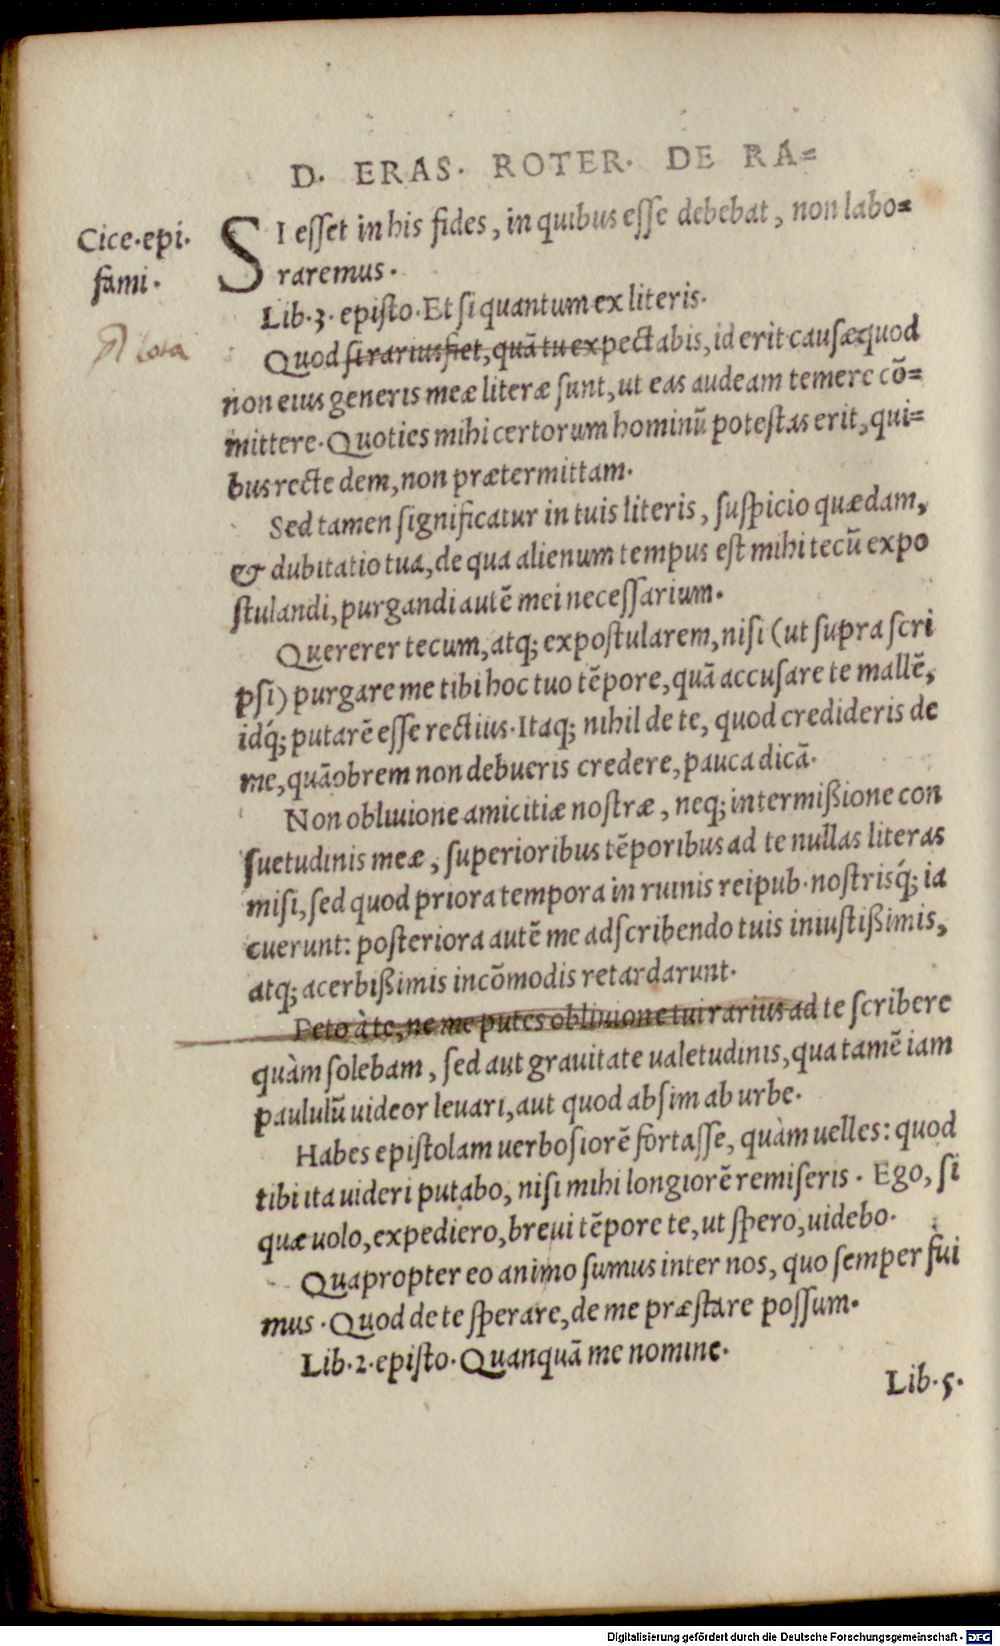 D. ERAS. ROTER. DE RA=
Cice.epi.
fami.
SI esset in his fides, in quibus esse debebat, non labo=
raremus.
Lib.3. episto. Et si quantum ex literis.
Nota
Quod si rarius fiet, quā tu expectabis, id erit causæ quod
non eius generis meæ literæ sunt, ut eas audeam temere cō=
mittere. Quoties mihi certorum hominū potestas erit, qui=
bus recte dem, non prætermittam.
Sed tamen significatur in tuis literis, suspicio quædam,
& dubitatio tua, de qua alienum tempus est mihi tecū expo
stulandi, purgandi autē mei necessarium.
Quererer tecum, atq; expostularem, nisi (ut supra scri
psi) purgare me tibi hoc tuo tēpore, quā accusare te mallē,
idq́; putarē esse rectius. Itaq; nihil de te, quod credideris de
me, quāobrem non debueris credere, pauca dicā.
Non obliuione amicitiæ nostræ, neq; intermißione con
suetudinis meæ, superioribus tēporibus ad te nullas literas
misi, sed quod priora tempora in ruinis reipub. nostrisq́; ia
cuerunt: posteriora autē me adscribendo tuis iniustißimis,
atq; acerbißimis incōmodis retardarunt.
Peto à te, ne me putes obliuione tui rarius ad te scribere
quàm solebam, sed aut grauitate ualetudinis, qua tamē iam
paululū uideor leuari, aut quod absim ab urbe.
Habes epistolam uerbosiorē fortasse, quàm uelles: quod
tibi ita uideri putabo, nisi mihi longiorē remiseris. Ego, si
quæ uolo, expediero, breui tēpore te, ut spero, uidebo.
Quapropter eo animo sumus inter nos, quo semper fui
mus. Quod de te sperare, de me præstare possum.
Lib.2.episto. Quanquā me nomine.
Lib.5.
Digitalisierung gefördert durch die Deutsche Forschungsgemeinschaft - DFG